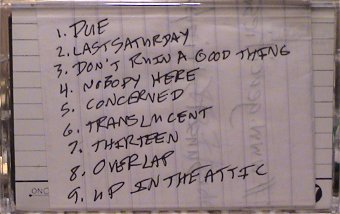 1. DUE
2. LAST SATURDAY
3. DON'T RUIN A GOOD THING
4. NOBODY HERE
5. CONCERNED
6. TRANSLUCENT
7. THIRTEEN
8. OVERLAP
9. UP IN THE ATTIC